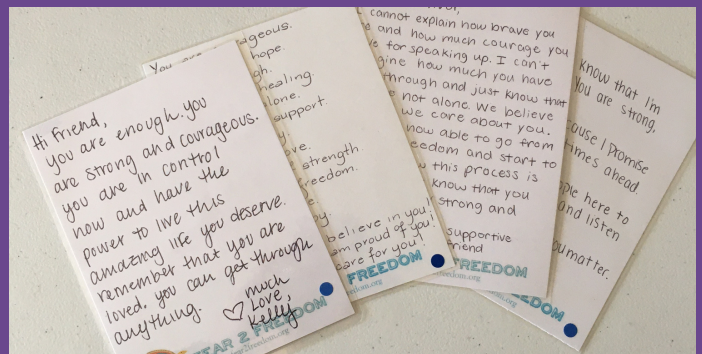 Hi Friend,
you are enough you
are strong and courageous.
you are in control
now and have the
power to live this
amazing life you deserve.
remember that you are
loved. you can get through
anything. ♡ much
love,
Kelly
FEAR 2 FREEDOM
You
hope.
healing.
support.
strength.
believe in you!
am proud of you!
care for you!
FREEDOM
cannot explain how brave you
and how much courage you
for speaking up. I can't
how much you have
through and just know that
not alone. We believe
we care about you.
now able to go from
and start to
this process is
know that you
strong and
supportive
friend
FREEDOM
know that I'm
You are strong,
I promise
times ahead.
here to
and listen
you matter.